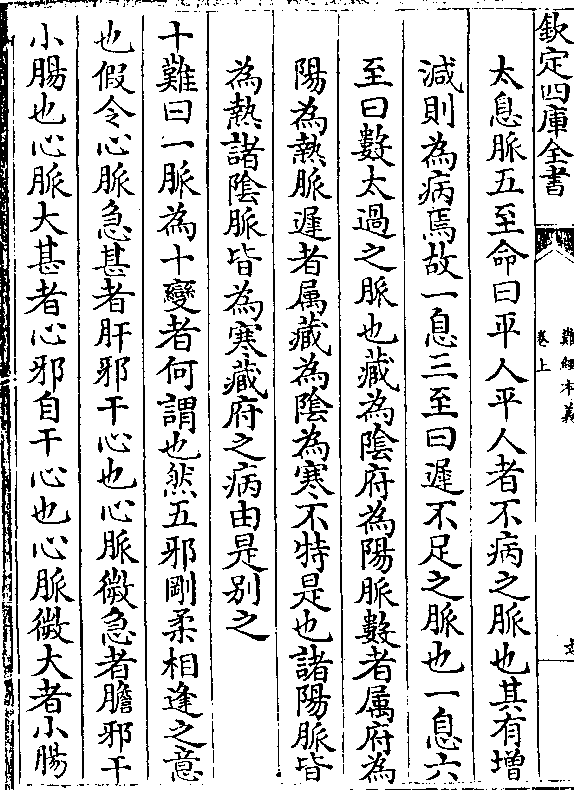 欽定四庫全書
難經本義
卷上
太息脈五至命曰平人平人者不病之脈也其有增
減則為病焉故一息三至曰遲不足之脈也一息六
至曰數太過之脈也藏為陰府為陽脈數者属府為
陽為熱脈遲者属藏為陰為寒不特是也諸陽脈皆
為熱諸陰脈皆為寒藏府之病由是别之
十難曰一脈為十變者何謂也然五邪剛柔相逢之意
也假令心脈急甚者肝邪干心也心脈微急者膽邪干
小腸也心脈大甚者心邪自干心也心脈微大者小腸